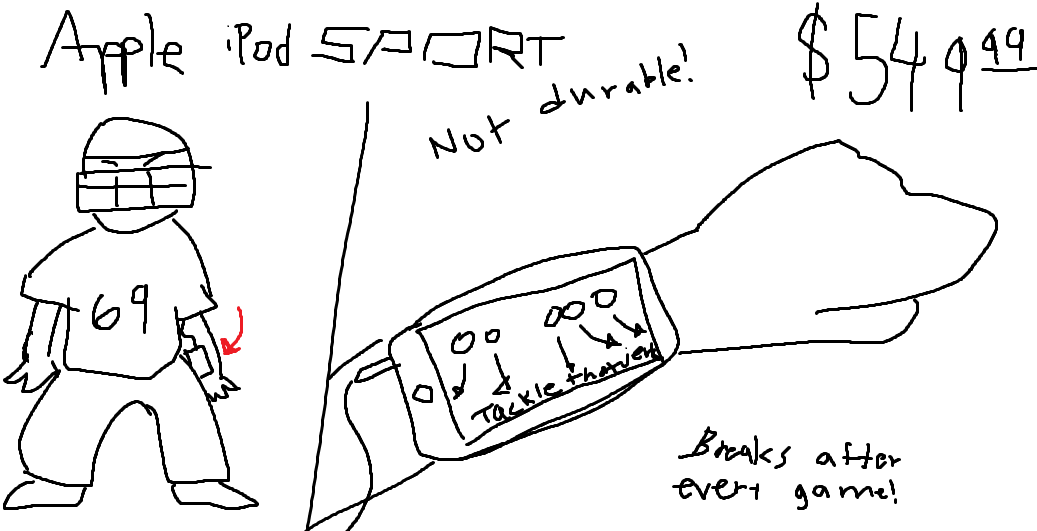 Apple iPod SPORT
$549.99
Not durable!
69
Tackle
Breaks after
every game!